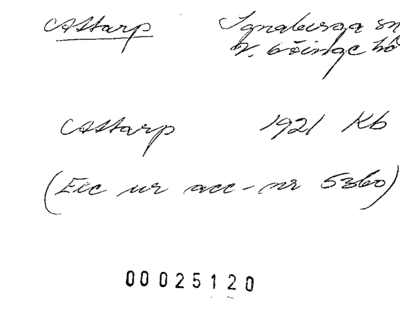 Astarp Ignaberga sn
V. Göinge hd
Astarp 1921 Kb
(Exc ur acc-nr 5360)
00025120